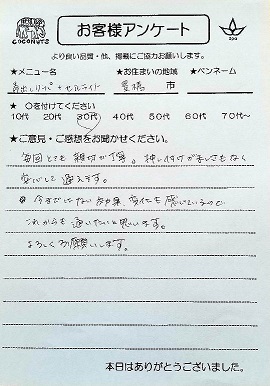 COCONUTS
お客様アンケート
より良い品質・他、掲載にご協力お願いします。
★メニュー名 ★お住まいの地域 ★ペンネーム
高出しリパ+セルライト 豊橋 市
★ 〇を付けてください
10代 20代 30代 40代 50代 60代 70代〜
★ご意見・ご感想をお聞かせください。
毎回とても親切丁寧。押し付けがましさもなく
安心して通えます。
今までにない効果、変化を感じているので
これからも通いたいと思います。
よろしくお願いします。
本日はありがとうございました。